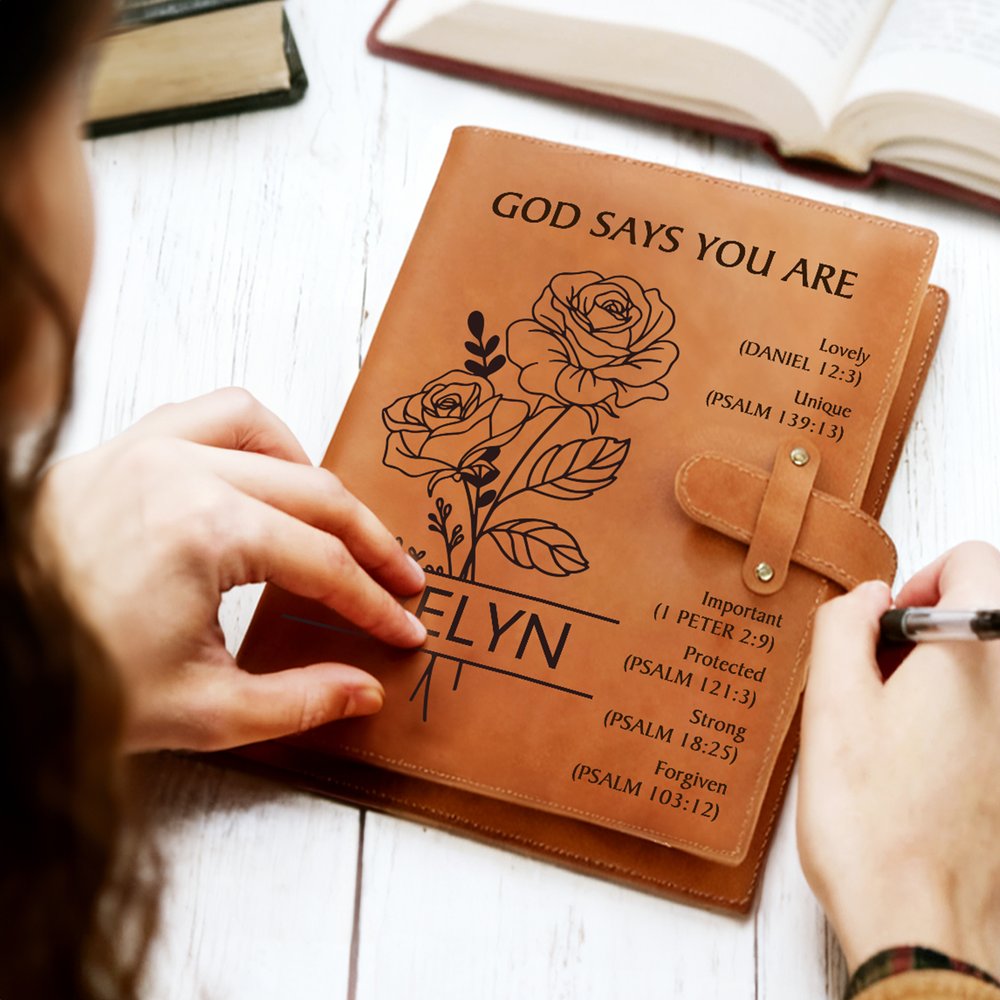 GOD SAYS YOU ARE
Lovely
(DANIEL 12:3)
Unique
(PSALM 139:13)
ELYN
Important
(1 PETER 2:9)
Protected
(PSALM 121:3)
Strong
(PSALM 18:25)
Forgiven
(PSALM 103:12)